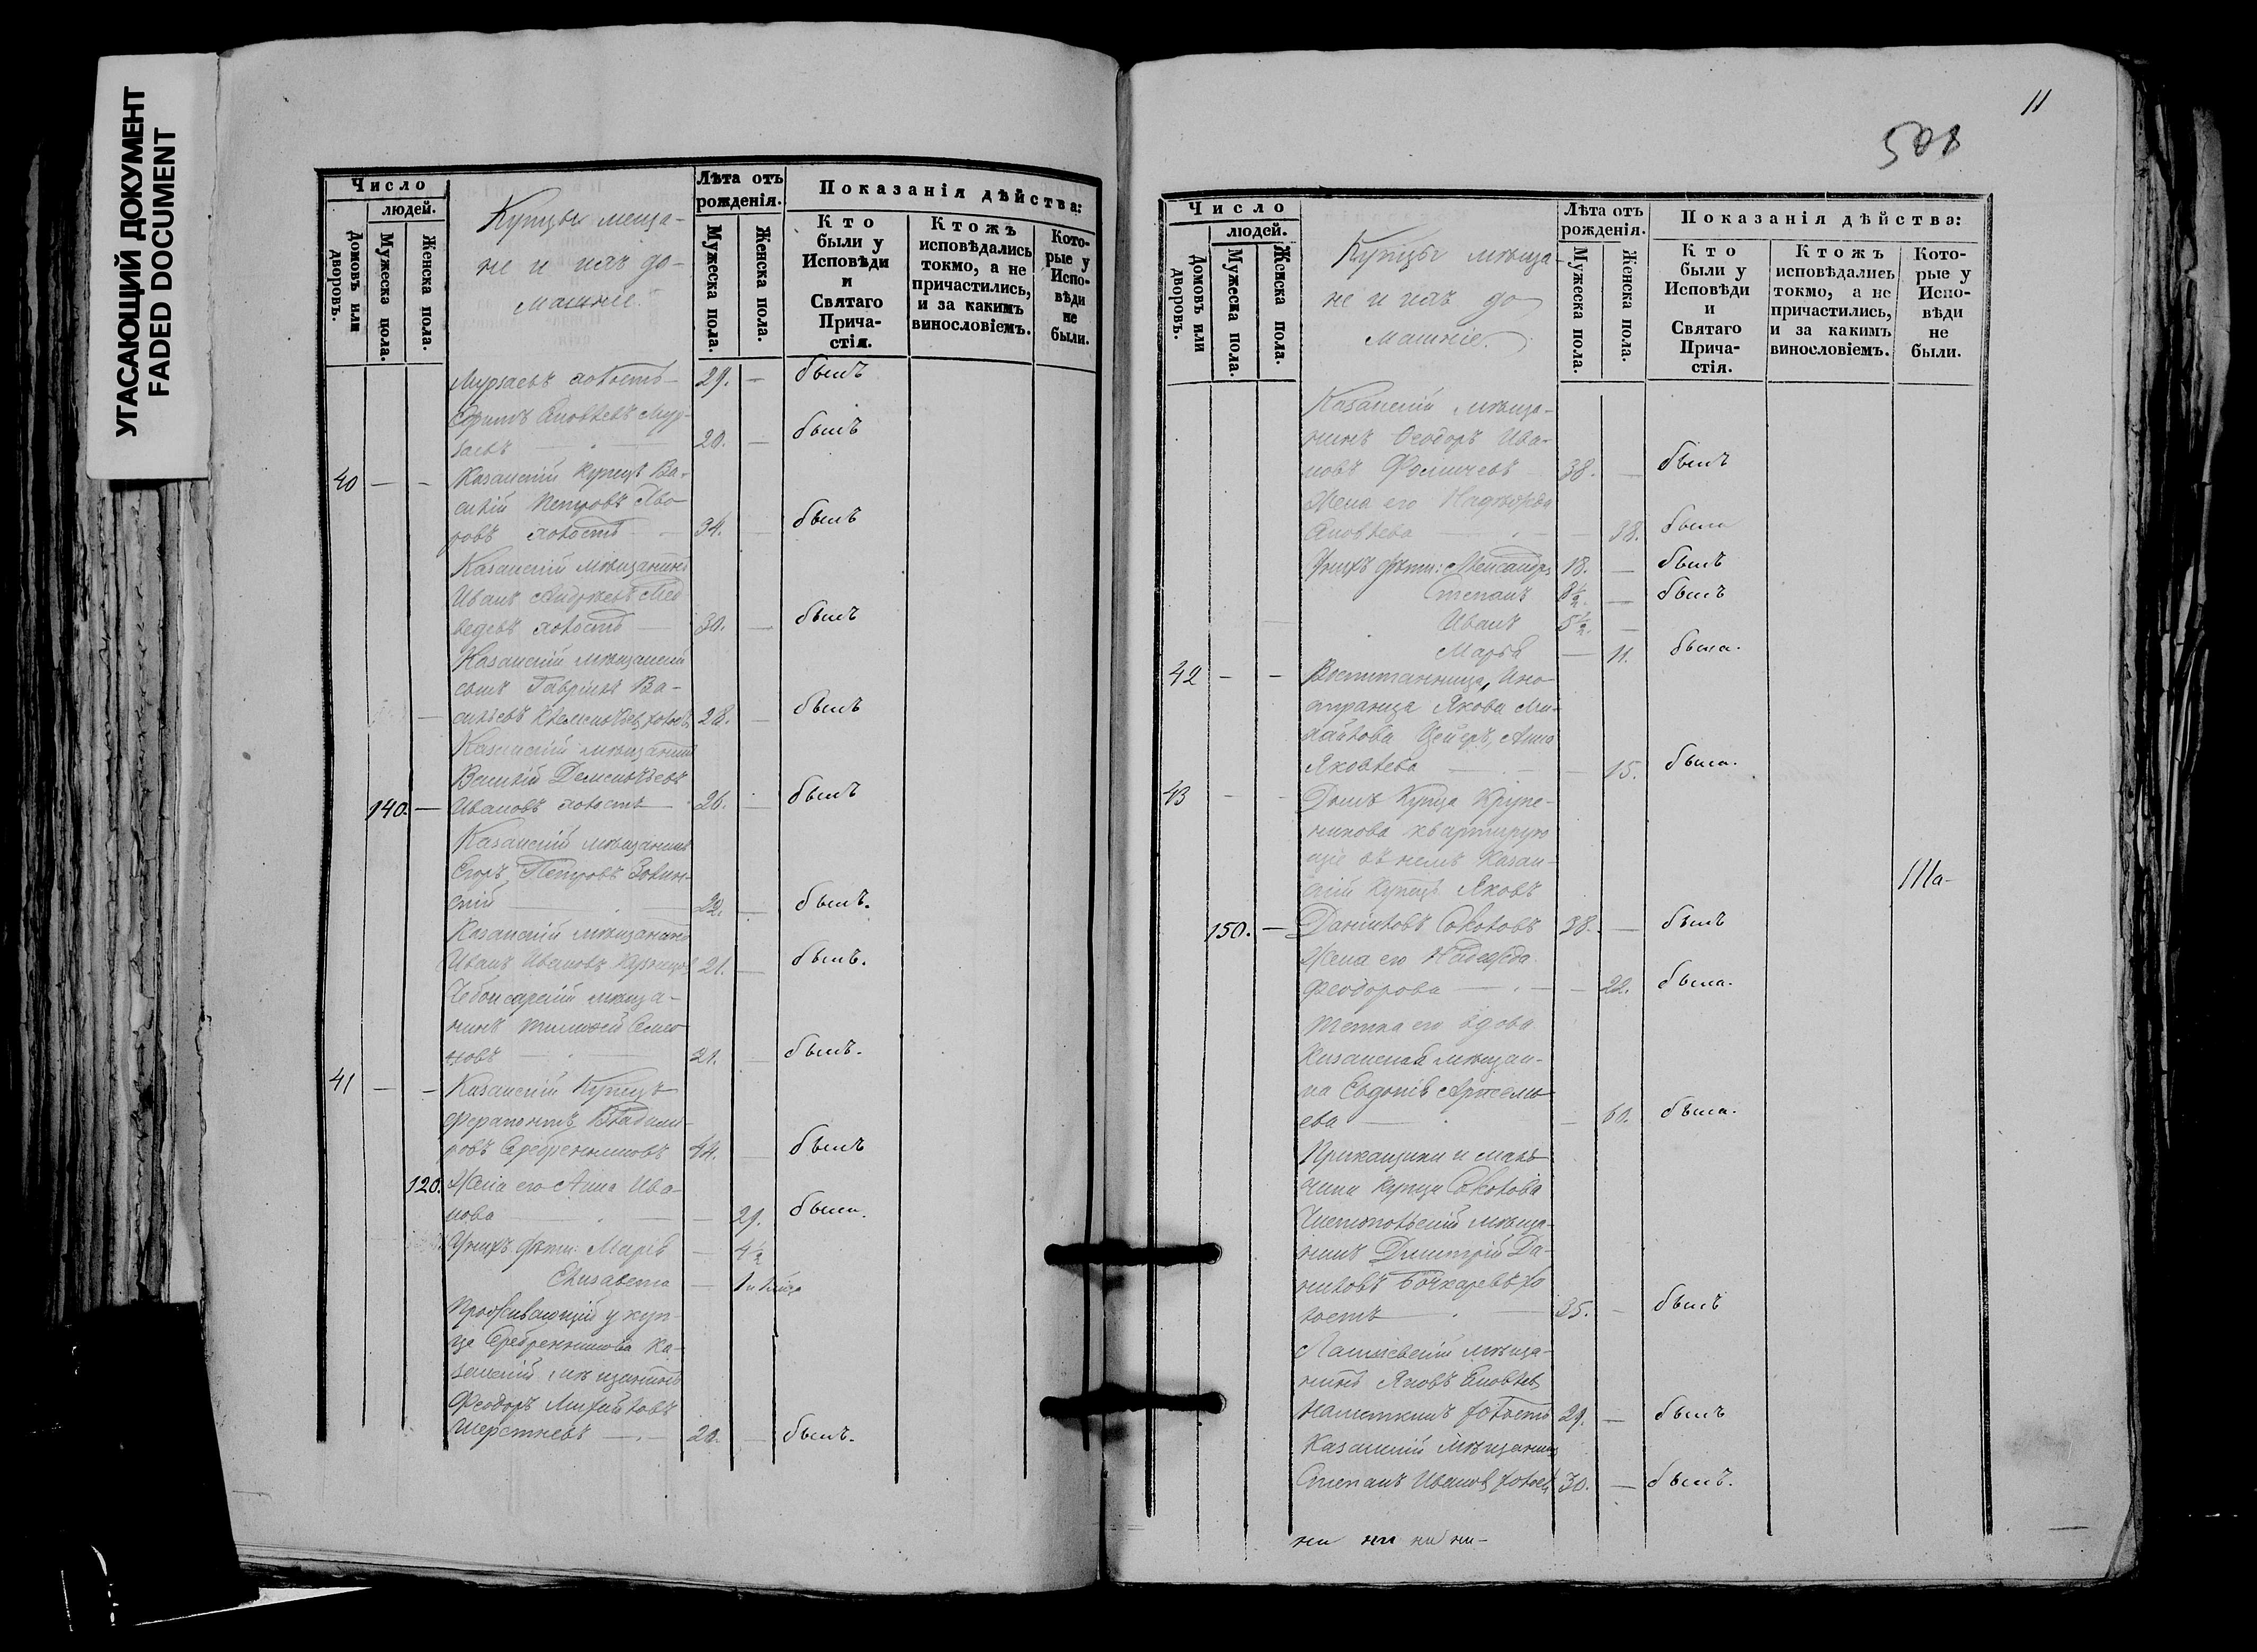 УГАСАЮЩИЙ ДОКУМЕНТ
FADED DOCUMENT
Число
людей.
Домовъ или дворовъ.
Мужеска пола.
Женска пола.
Купцы меща-
не и ихъ до-
машніе.
Лѣта отъ
рожденія.
Мужеска пола.
Женска пола.
Показанія дѣйства:
Кто
были у
Исповѣди
и
Святаго
Прича-
стія.
Ктожъ
исповѣдались
токмо, а не
причастились,
и за какимъ
винословіемъ.
Кото-
рые у
Испо-
вѣди
не
были.
Мурзаевъ холостъ — 29. — былъ
Ефимъ Яковлевъ Мур-
заевъ — 20. — былъ
40 — — Казанскій Купецъ Ва-
силій Петровъ
ровъ холостъ — 34. — былъ
Казанскій мѣщанинъ
Иванъ Андреевъ Мед
ведевъ холостъ — 30. — былъ
Казанскій мѣщанскій
сынъ Гаврилъ Ва-
сильевъ холостъ 28. — былъ
Казанскій мѣщанинъ
Василій Дементьевъ
140. — Ивановъ холостъ — 26. — былъ
Казанскій мѣщанинъ
Егоръ Петровъ
скій — 22. — былъ.
Казанскій мѣщанинъ
Иванъ Ивановъ Кузнецовъ 21. — былъ.
Чебоксарскій мѣща-
нинъ Тимофей Семе
новъ — 21. — былъ.
41 — — Казанскій Купецъ
Ферапонтъ Владими-
ровъ Серебренниковъ 44. — былъ
120. Жена его Анна Ива-
нова — — 29. была.
У нихъ дѣти: Марія — 4½
Елисавета — 1
Проживающій у куп-
ца Серебренникова Ка-
занскій мѣщанинъ
Феодоръ Михайловъ
Шерстневъ — 20. — былъ.
11
508
Число
людей.
Домовъ или дворовъ.
Мужеска пола.
Женска пола.
Купцы мѣща-
не и ихъ до
машніе.
Лѣта отъ
рожденія.
Мужеска пола.
Женска пола.
Показанія дѣйства:
Кто
были у
Исповѣди
и
Святаго
Прича-
стія.
Ктожъ
исповѣдались
токмо, а не
причастились,
и за какимъ
винословіемъ.
Кото-
рые у
Испо-
вѣди
не
были.
Казанскій мѣща-
нинъ Ѳеодоръ Ива-
новъ Фомичевъ 38. — былъ
Жена его Надежда
Яковлева — — 38. была
У нихъ дѣти: Александръ 18. — былъ
Степанъ 8½. — былъ
Иванъ 5½. —
Марья — 11. была.
42 — — Воспитанница, Ино-
странца Якова Ми-
хайлова Цейеръ, Анна
Яковлева — — 15. была.
43 — — Домъ Купца Крупе-
никова квартирую
щіе въ немъ Казан-
скій Купецъ Яковъ
Ша-
150. — Даниловъ Соколовъ 38. — былъ
Жена его Надежда
Феодорова — — 22. была.
Тетка его вдова
Казанская мѣщан-
ка Евдокія Артемь
ева — — 60. была.
Прикащики и маль
чики купца Соколова
Чистопольскій мѣща-
нинъ Димитрій Да-
ниловъ Бочкаревъ хо
лостъ — 35. — былъ
Лаишевскій мѣща-
нинъ Яковъ Яковлевъ
холостъ 29. — былъ
Казанскій мѣщанинъ
Степанъ Ивановъ холостъ 30. — былъ.